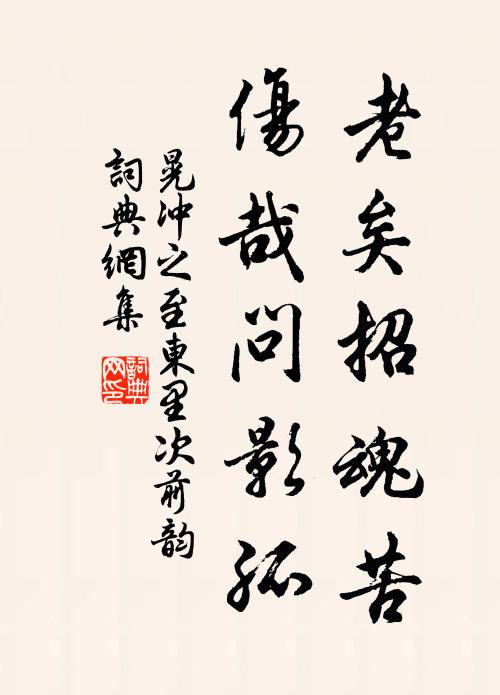 老矣招魂苦
傷哉問影孤
晁沖之至東里次前韵
詞典網集
詞典網印